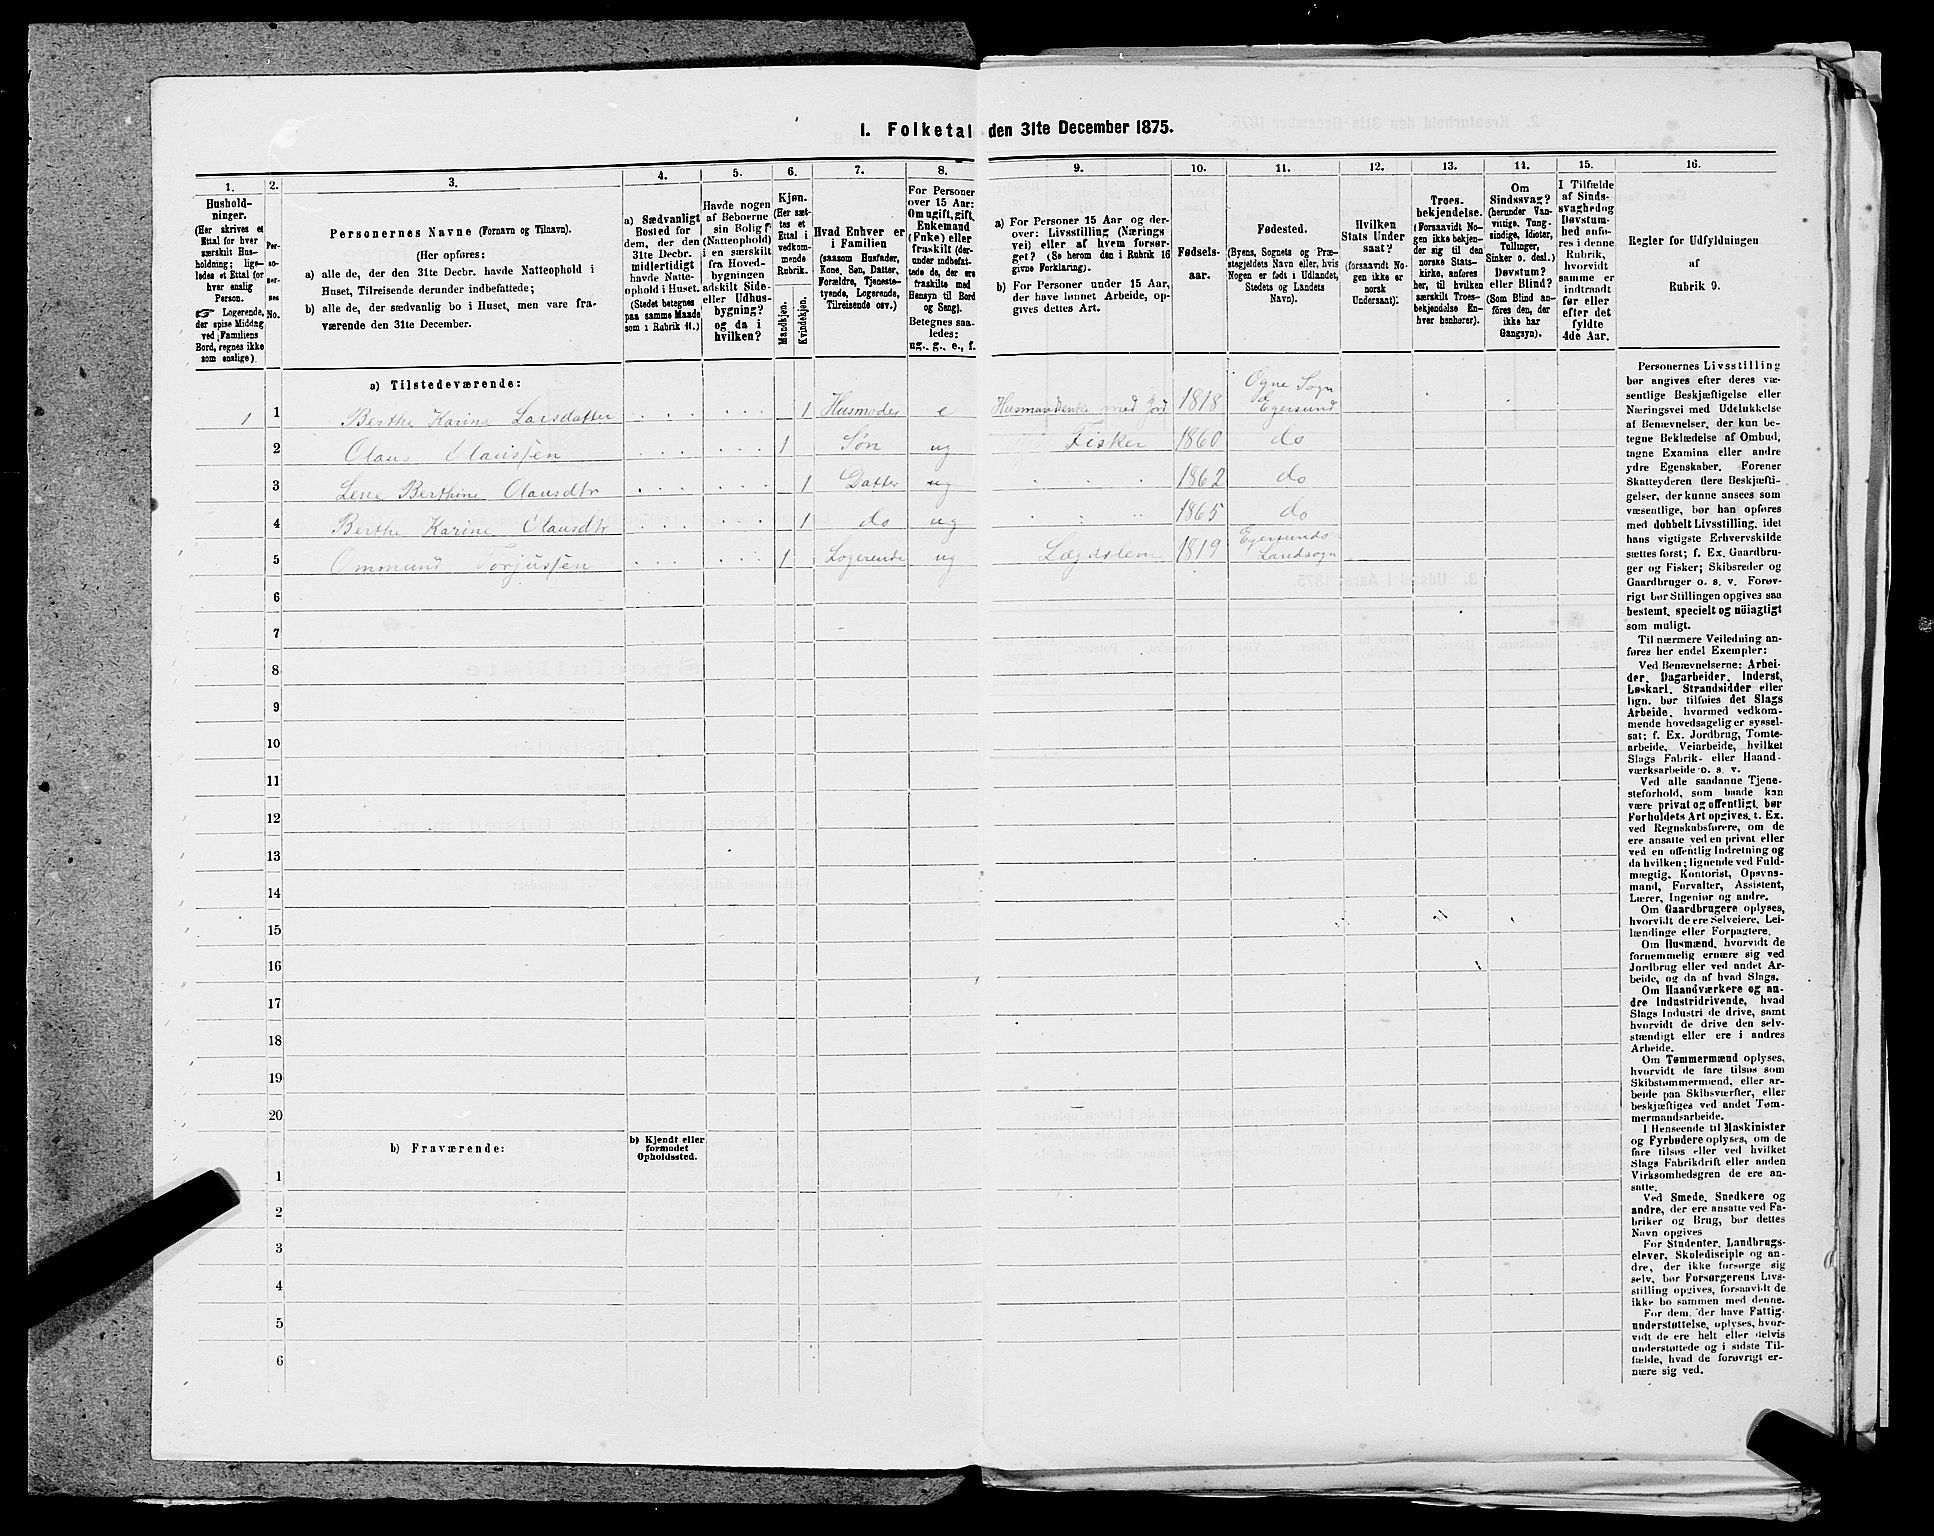 1. Folketal den 31te December 1875.
1.
2.
3.
4.
5.
6.
7.
8.
9.
10.
11.
12.
13.
14.
15.
16.
Husholdninger.
(Her skrives et
Ettal for hver
særskilt Husholdning;
ligeledes et Ettal for
hver enslig
Person.
☞ Logerende,
der spise Middag
ved Familiens
Bord, regnes ikke
som enslige)
Personernes No.
Personernes Navne (Fornavn og Tilnavn).
(Her opføres:
a) alle de, der den 31te Decbr. havde Natteophold i
Huset, Tilreisende derunder indbefattede;
b) alle de, der sædvanlig bo i Huset, men vare fraværende
den 31te December.
a) Sædvanligt
Bosted for
dem, der den
31te Decbr.
midlertidigt
havde Natteophold
i Huset.
(Stedet betegnes
paa samme Maade
som i Rubrik 11.)
Havde nogen
af Beboerne
sin Bolig
(Natteophold)
i en særskilt
fra Hovedbygningen
adskilt Side-
eller Udhusbygning?
og da i
hvilken?
Kjøn.
(Her sættes
et
Ettal i
vedkommende
Rubrik.
Mandkjøn.
Kvindekjøn.
Hvad Enhver er
i Familien
(saasom Husfader,
Kone, Søn, Datter,
Forældre, Tjenestetyende,
Logerende,
Tilreisende osv.)
For Personer
over 15 Aar:
Om ugift, gift,
Enkemand
(Enke) eller
fraskilt (derunder
indbefattede
de, der ere
fraskilte med
Hensyn til Bord
og Seng).
Betegnes saaledes:
ug., g., e., f.
a) For Personer 15 Aar og derover:
Livsstilling (Næringsvei)
eller af hvem forsørget?
(Se herom den i Rubrik 16
givne Forklaring).
b) For Personer under 15 Aar,
der have lønnet Arbeide, opgives
dettes Art.
Fødselsaar.
Fødested.
(Byens, Sognets og Præstegjeldets
Navn eller, hvis
Nogen er født i Udlandet,
Stedets og Landets
Navn).
Hvilken
Stats Undersaat?
(forsaavidt Nogen
ikke er
norsk
Undersaat).
Troesbekjendelse.
(Forsaavidt Nogen
ikke bekjender
sig til den
norske Statskirke,
anføres
her, til hvilken
særskilt Troesbekjendelse
Enhver
henhører).
Om
Sindssvag?
(herunder Vanvittige,
Tungsindige,
Idioter,
Tullinger,
Sinker o. desl.)
Døvstum?
eller Blind?
(Som Blind anføres
den, der
ikke har
Gangsyn).
I Tilfælde
af Sindssvaghed og
Døvstumhed
anføres
i denne
Rubrik,
hvorvidt
samme er
indtraadt
før eller
efter det
fyldte
4de Aar.
Regler for Udfyldningen
af
Rubrik 9.
a) Tilstedeværende:
1 1 Berthe Karine Larsdatter 1 Husmoder e Husmandsenke med Jord 1818 Ogne Sogn Egersund
2 Olaus Olaussen 1 Søn ug Fisker 1860 do
3 Lene Berthine Olausdtr 1 Datter ug 1862 do
4 Berthe Karine Olausdtr 1 do ug 1865 do
5 Ommund Torjussen 1 Logerende ug Lægdslem 1819 Egersunds Landsogn
6
7
8
9
10
11
12
13
14
15
16
17
18
19
20
b) Fraværende:
b) Kjendt eller
formodet
Opholdssted.
1
2
3
4
5
6
Personernes Livsstilling
bør angives efter deres væsentlige
Beskjæftigelse eller
Næringsvei med Udelukkelse
af Benævnelser, der kun betegne
Beklædelse af Ombud,
tagne Examina eller andre
ydre Egenskaber. Forener
Skatteyderen flere Beskjæftigelser,
der kunne ansees som
væsentlige, bør han opføres
med dobbelt Livsstilling, idet
hans vigtigste Erhvervskilde
sættes først; f. Ex. Gaardbruger
og Fisker; Skibsreder og
Gaardbruger o. s. v. Forøvrigt
bør Stillingen opgives saa
bestemt, specielt og nöiagtigt
som muligt.
Til nærmere Veiledning anføres
her endel Exempler:
Ved Benævnelserne: Arbeider,
Dagarbeider, Inderst,
Løskarl, Strandsidder eller
lign. bør tilføies det Slags
Arbeide, hvormed vedkommende
hovedsagelig er sysselsat;
f. Ex. Jordbrug, Tomtearbeide,
Veiarbeide, hvilket
Slags Fabrik- eller Haandværksarbeide
o. s. v.
Ved alle saadanne Tjenesteforhold,
som baade kan
være privat og offentligt, bør
Forholdets Art opgives, t. Ex.
ved Regnskabsførere, om de
ere ansatte ved en privat eller
ved en offentlig Indretning og
da hvilken; lignende ved Fuldmægtig,
Kontorist, Opsynsmand,
Forvalter, Assistent,
Lærer, Ingeniør og andre.
Om Gaardbrugere oplyses,
hvorvidt de ere Selveiere, Leilændinge
eller Forpagtere.
Om Husmænd, hvorvidt de
fornemmelig ernære sig ved
Jordbrug eller ved andet Arbeide,
og da af hvad Slags.
Om Haandværkere og andre
Industridrivende, hvad
Slags Industri de drive, samt
hvorvidt de drive den selvstændigt
eller ere i andres
Arbeide.
Om Tømmermænd oplyses,
hvorvidt de fare tilsøs som
Skibstømmermænd, eller arbeide
paa Skibsværfter, eller
beskjæftiges ved andet Tømmermandsarbeide.
I Henseende til Maskinister
og Fyrbødere oplyses, om de
fare tilsøs eller ved hvilket
Slags Fabrikdrift eller anden
Virksomhedsgren de ere ansatte.
Ved Smede, Snedkere og
andre, der ere ansatte ved Fabriker
og Brug, bør dettes
Navn opgives
For Studenter, Landbrugselever,
Skoledisciple og andre,
der ikke forsørge sig
selv, bør Forsørgerens Livsstilling
opgives, forsaavidt de
ikke bo sammen med denne.
For dem, der have Fattigunderstøttelse,
oplyses, hvorvidt
de ere helt eller delvis
understøttede og i sidste Tilfælde,
hvad de forøvrigt ernære
sig ved.